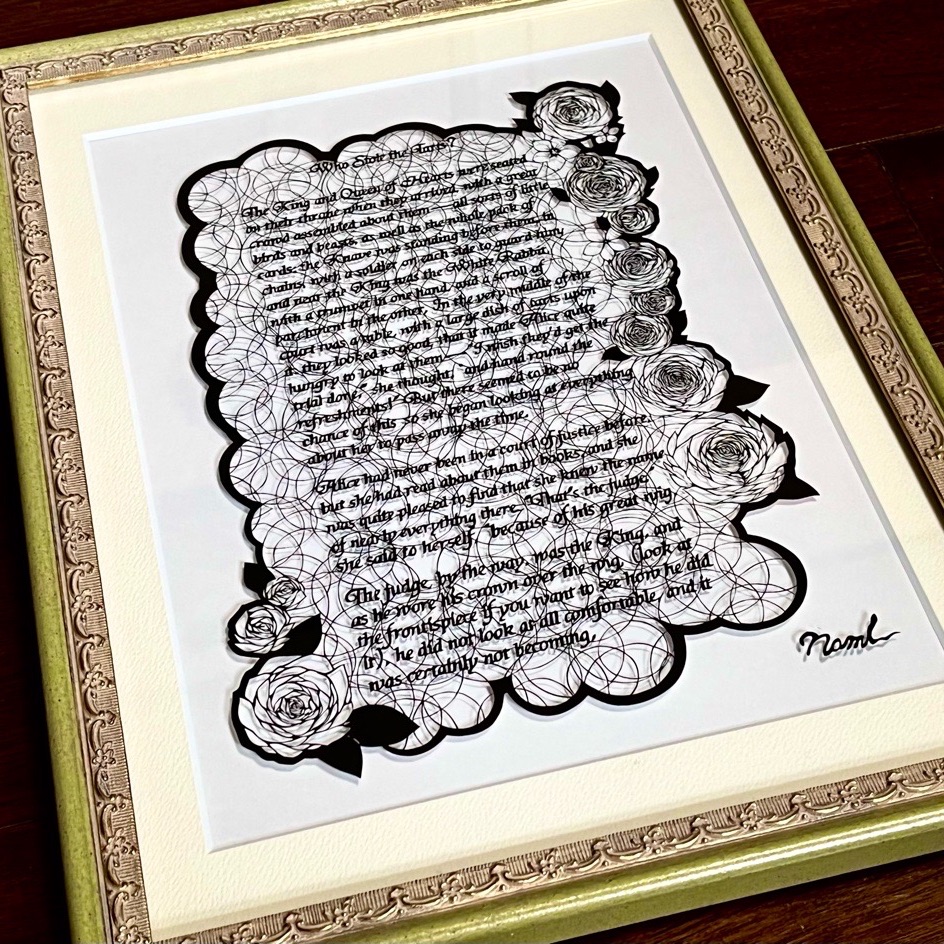 Who Stole the Tarts?
The King and Queen of Hearts were seated
on their throne when they arrived, with a great
crowd assembled about them — all sorts of little
birds and beasts, as well as the whole pack of
cards: the Knave was standing before them, in
chains, with a soldier on each side to guard him;
and near the King was the White Rabbit,
with a trumpet in one hand, and a scroll of
parchment in the other. In the very middle of the
court was a table, with a large dish of tarts upon
it: they looked so good, that it made Alice quite
hungry to look at them — "I wish they'd get the
trial done," she thought, "and hand round the
refreshments!" But there seemed to be no
chance of this, so she began looking at everything
about her to pass away the time.
Alice had never been in a court of justice before,
but she had read about them in books, and she
was quite pleased to find that she knew the name
of nearly everything there. "That's the judge,"
she said to herself, "because of his great wig."
The judge, by the way, was the King, and
as he wore his crown over the wig, (look at
the frontispiece if you want to see how he did
it), he did not look at all comfortable, and it
was certainly not becoming.
Naml